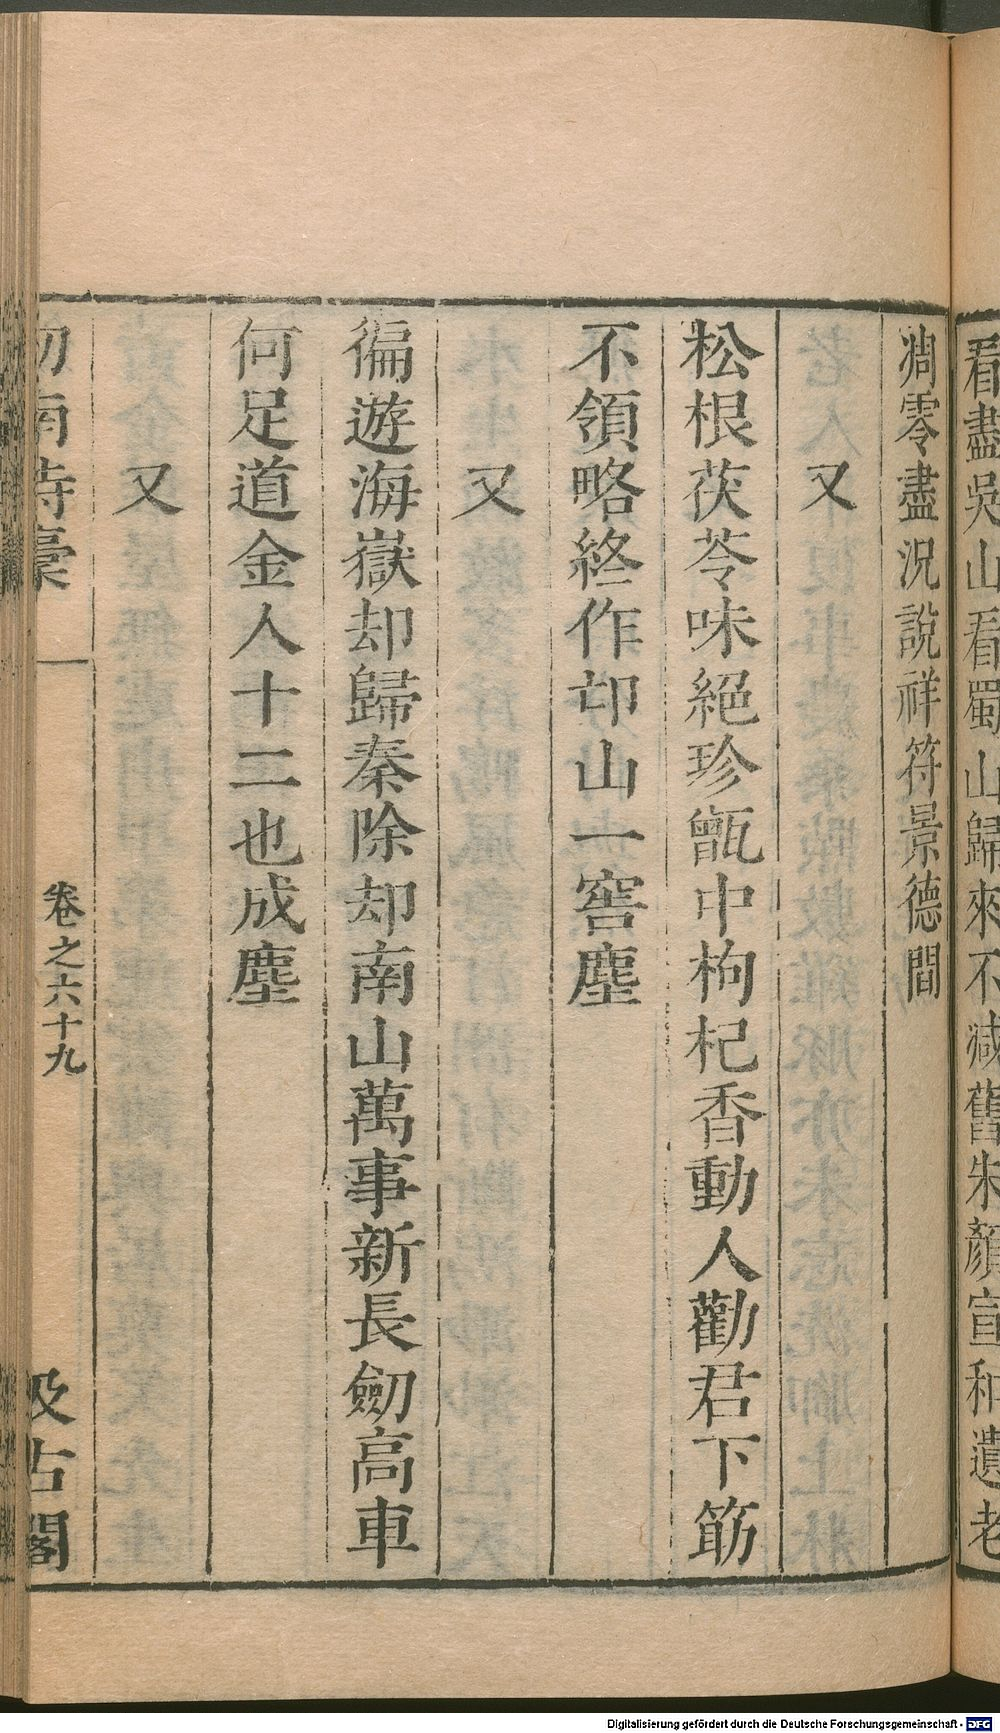 看盡吳山看蜀山歸來不減舊朱顏宣和遺老
凋零盡況說祥符景德間
又
松根茯苓味絕珍甑中枸杞香動人勸君下筯
不領略終作邙山一窖塵
又
徧遊海嶽却歸秦除却南山萬事新長劒高車
何足道金人十二也成塵
又
劒南詩稾
卷之六十九
汲古閣
Digitalisierung gefördert durch die Deutsche Forschungsgemeinschaft - DFG